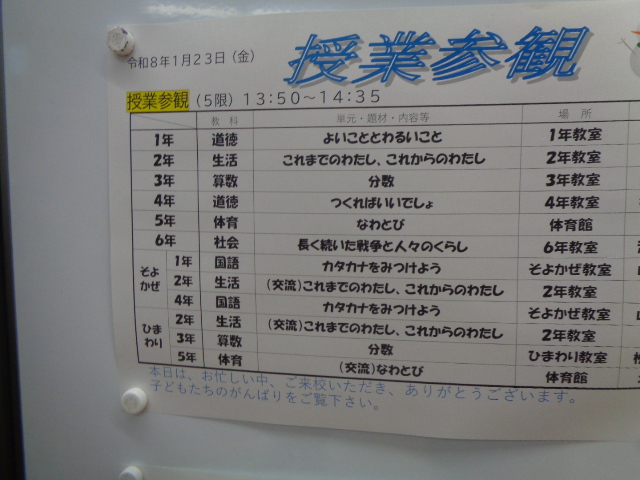 令和8年1月23日（金）
授業参観
授業参観（5限）13:50～14:35
教科 単元・題材・内容等 場所
1年 道徳 よいこととわるいこと 1年教室
2年 生活 これまでのわたし、これからのわたし 2年教室
3年 算数 分数 3年教室
4年 道徳 つくればいいでしょ 4年教室
5年 体育 なわとび 体育館
6年 社会 長く続いた戦争と人々のくらし 6年教室
そよかぜ 1年 国語 カタカナをみつけよう そよかぜ教室
2年 生活 （交流）これまでのわたし、これからのわたし 2年教室
4年 国語 カタカナをみつけよう そよかぜ教室
ひまわり 2年 生活 （交流）これまでのわたし、これからのわたし 2年教室
3年 算数 分数 ひまわり教室
5年 体育 （交流）なわとび 体育館
本日は、お忙しい中、ご来校いただき、ありがとうございます。
子どもたちのがんばりをご覧下さい。